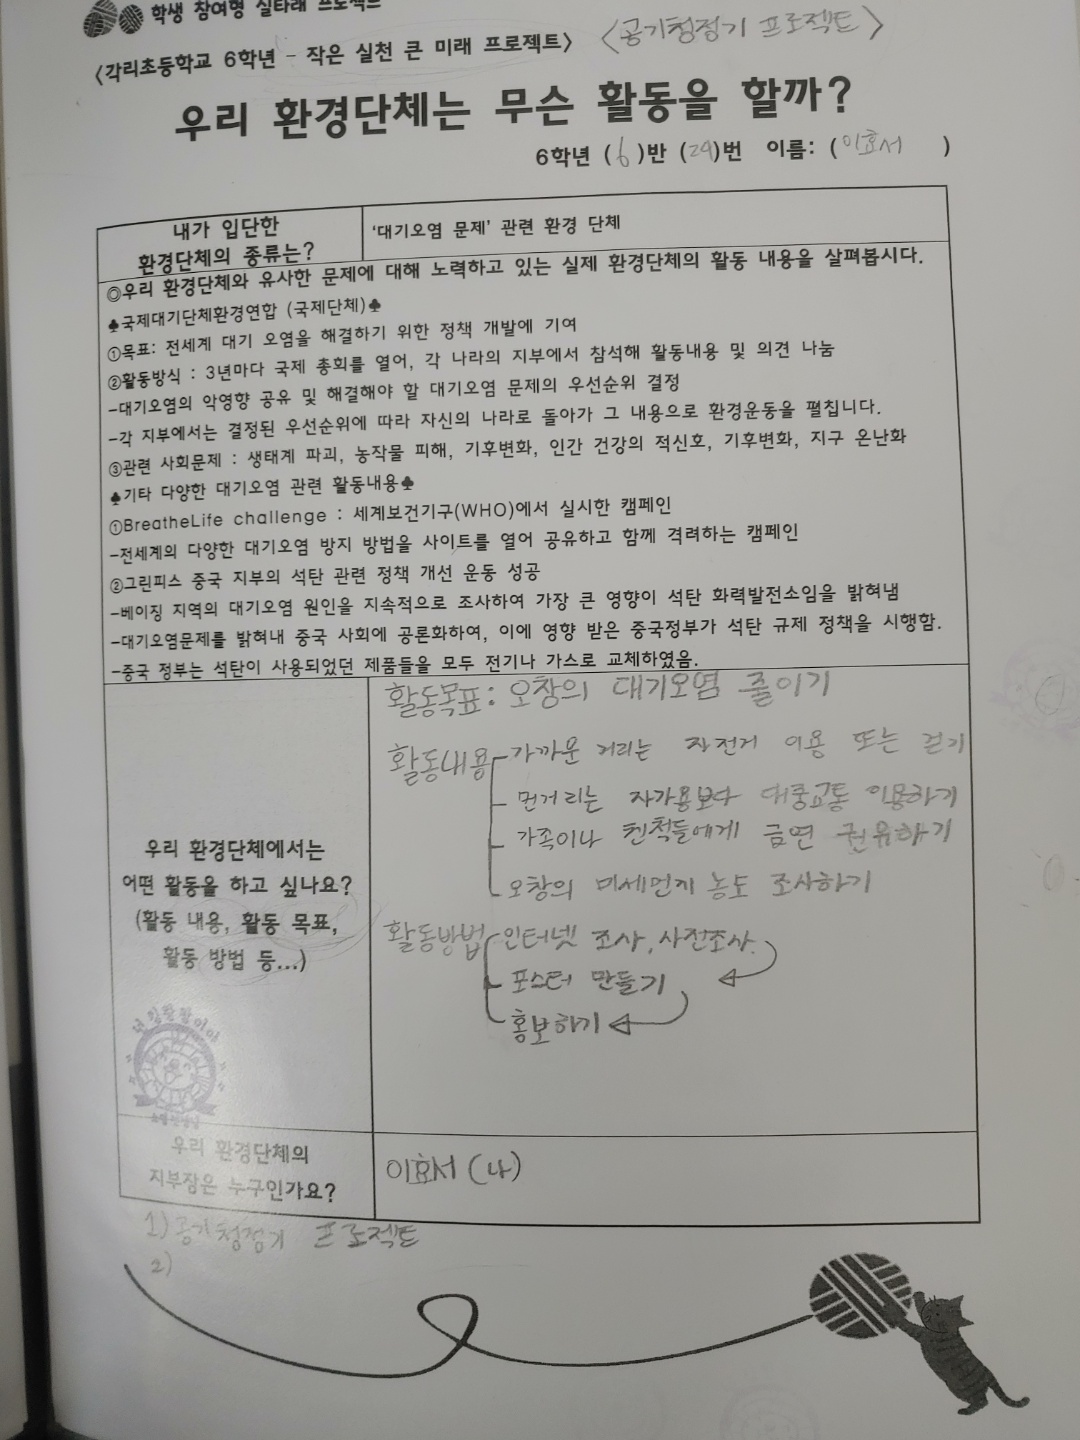 학생 참여형 실타래 프로젝트
<각리초등학교 6학년 - 작은 실천 큰 미래 프로젝트> <공기청정기 프로젝트>
우리 환경단체는 무슨 활동을 할까?
6학년 (6)반 (29)번 이름: (이효서 )
내가 입단한
환경단체의 종류는?
'대기오염 문제' 관련 환경 단체
◎우리 환경단체와 유사한 문제에 대해 노력하고 있는 실제 환경단체의 활동 내용을 살펴봅시다.
♣국제대기단체환경연합 (국제단체)♣
①목표: 전세계 대기 오염을 해결하기 위한 정책 개발에 기여
②활동방식 : 3년마다 국제 총회를 열어, 각 나라의 지부에서 참석해 활동내용 및 의견 나눔
-대기오염의 악영향 공유 및 해결해야 할 대기오염 문제의 우선순위 결정
-각 지부에서는 결정된 우선순위에 따라 자신의 나라로 돌아가 그 내용으로 환경운동을 펼칩니다.
③관련 사회문제 : 생태계 파괴, 농작물 피해, 기후변화, 인간 건강의 적신호, 기후변화, 지구 온난화
♣기타 다양한 대기오염 관련 활동내용♣
①BreatheLife challenge : 세계보건기구(WHO)에서 실시한 캠페인
-전세계의 다양한 대기오염 방지 방법을 사이트를 열어 공유하고 함께 격려하는 캠페인
②그린피스 중국 지부의 석탄 관련 정책 개선 운동 성공
-베이징 지역의 대기오염 원인을 지속적으로 조사하여 가장 큰 영향이 석탄 화력발전소임을 밝혀냄
-대기오염문제를 밝혀내 중국 사회에 공론화하여, 이에 영향 받은 중국정부가 석탄 규제 정책을 시행함.
-중국 정부는 석탄이 사용되었던 제품들을 모두 전기나 가스로 교체하였음.
우리 환경단체에서는
어떤 활동을 하고 싶나요?
(활동 내용, 활동 목표,
활동 방법 등...)
활동목표: 오창의 대기오염 줄이기
활동내용 - 가까운 거리는 자전거 이용 또는 걷기
- 먼거리는 자가용보다 대중교통 이용하기
- 가족이나 친척들에게 금연 권유하기
- 오창의 미세먼지 농도 조사하기
활동방법 - 인터넷 조사, 사전조사.
- 포스터 만들기
- 홍보하기
우리 환경단체의
지부장은 누구인가요?
이효서 (나)
1) 공기청정기 프로젝트
2)